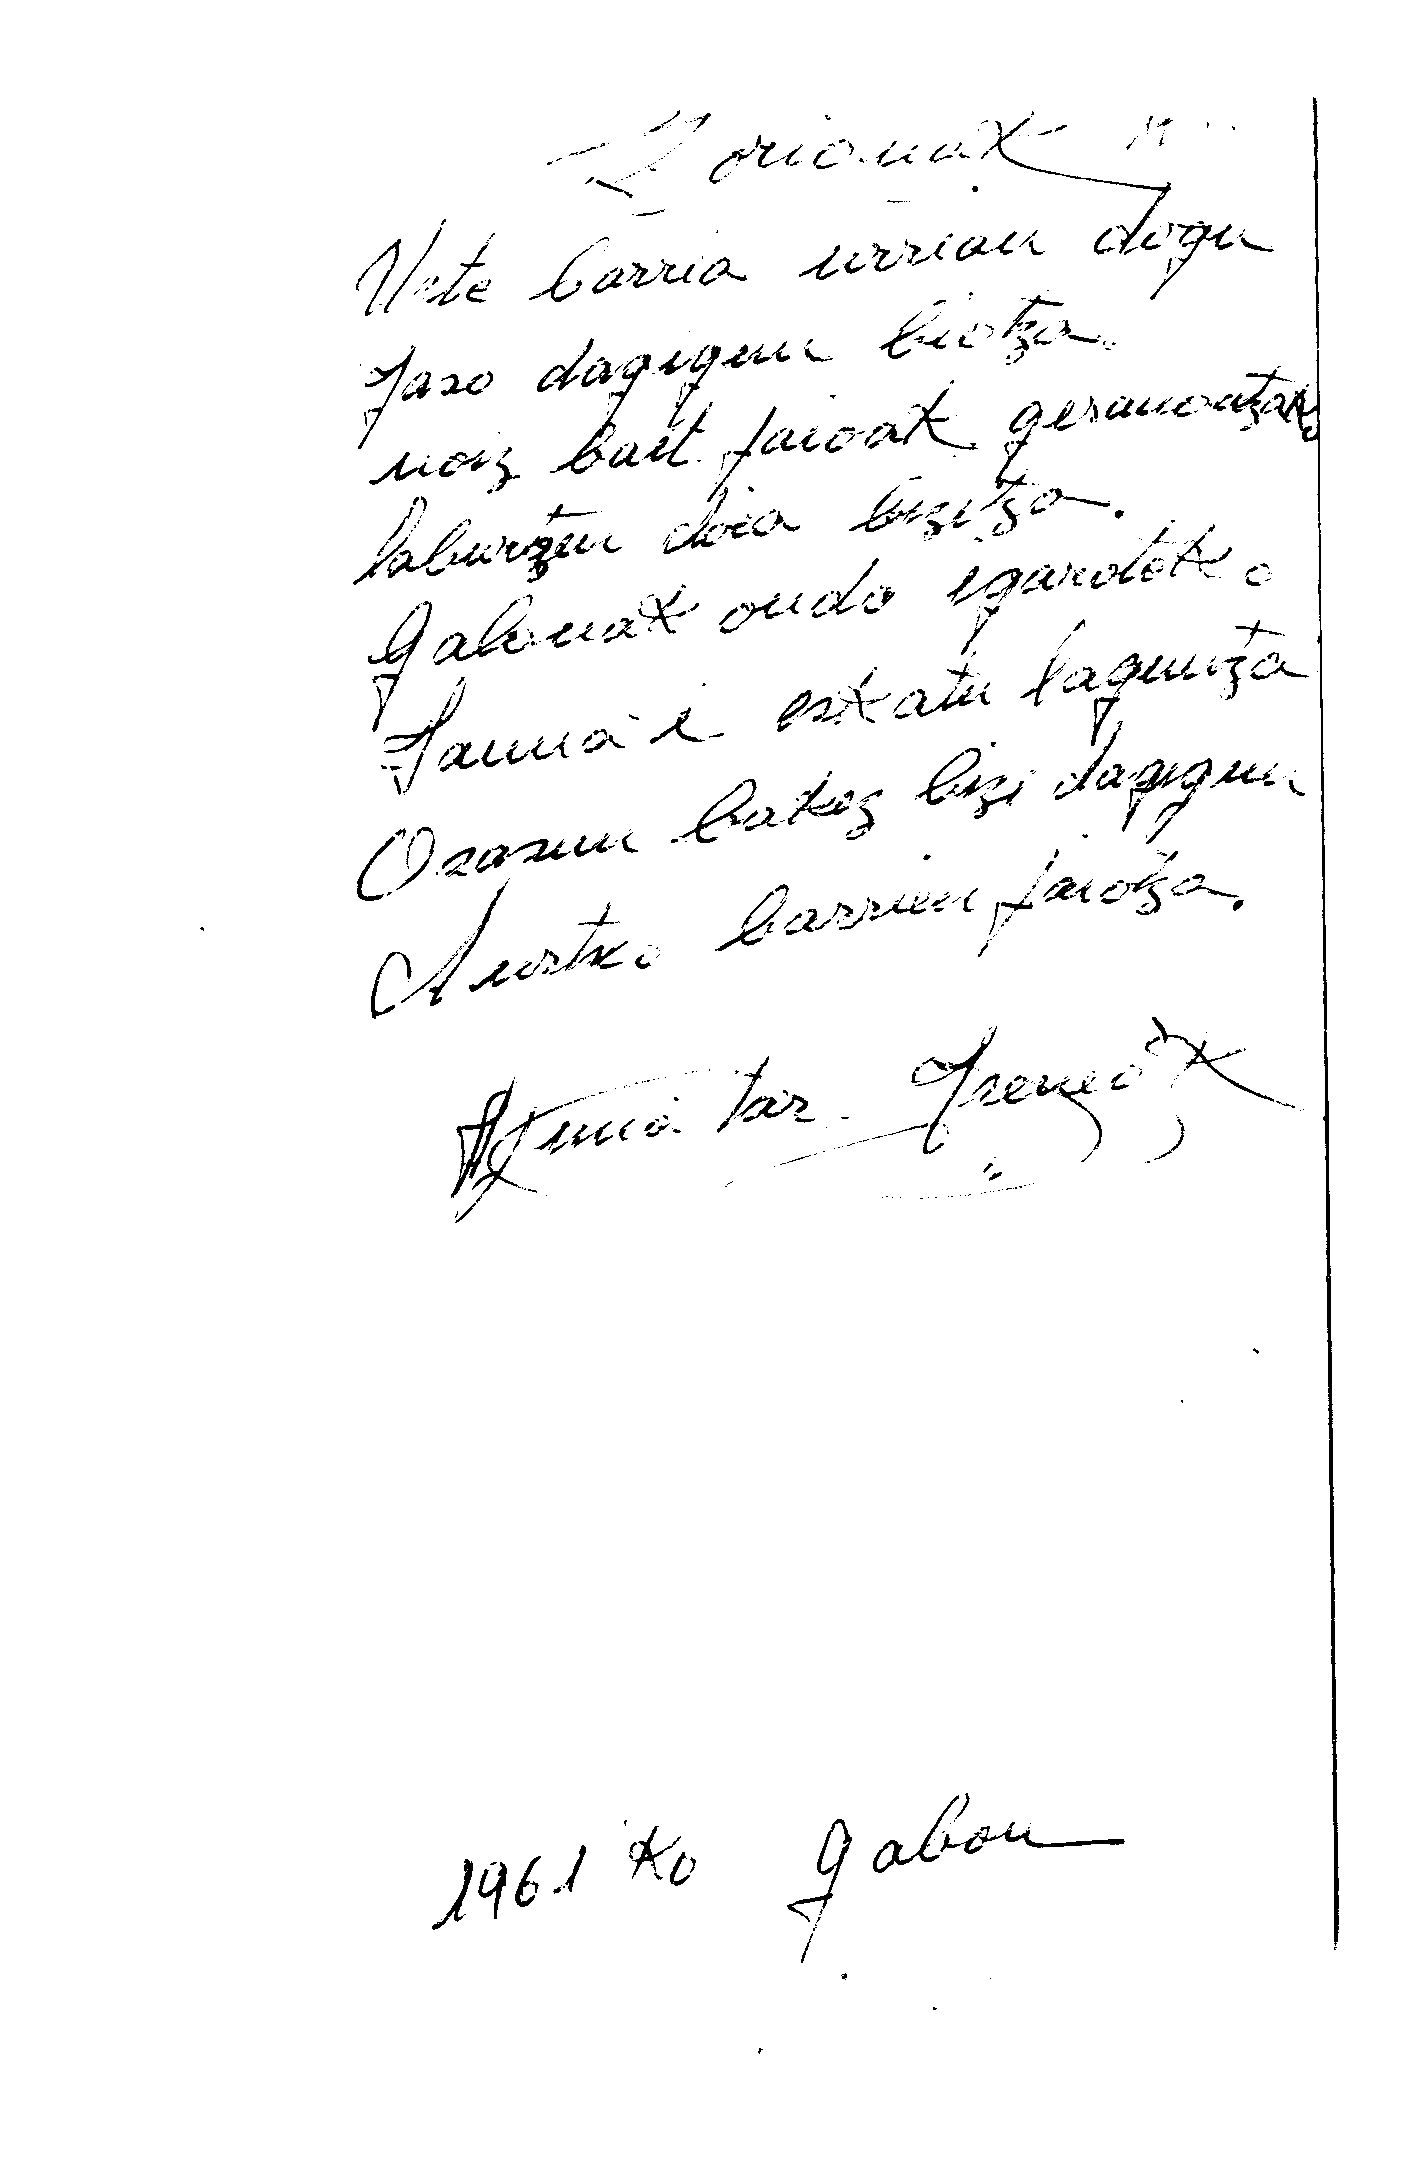 Zorionak
Urte barria urrian dogu
Jaso dagigun biotza.
noiz bait jaioak geranontzat
laburtzen doia bizitza.
Gabonak ondo igaroteko
Jauna'ri eskatu laguntza
Osasun bakez bizi dagigun
Aurtxo barrien jaiotza.
tar
1961'ko Gabon